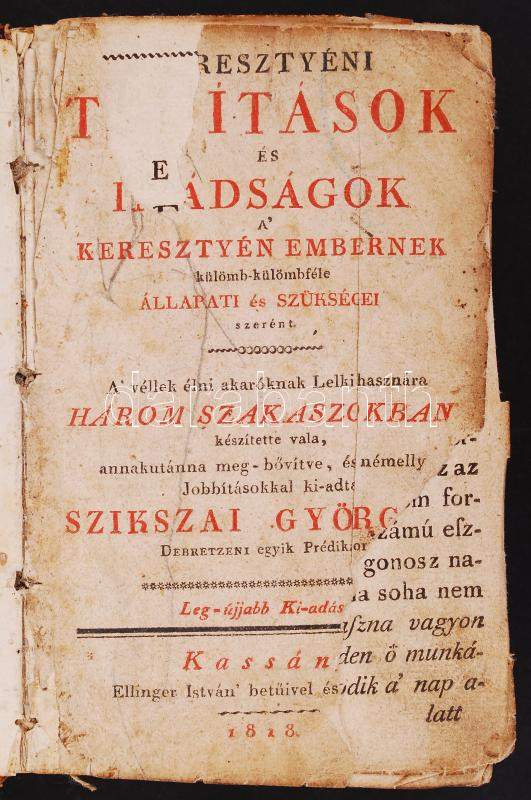 RESZTYÉNI
T ÍTÁSOK
E
ÉS
ÁDSÁGOK
A'
KERESZTYÉN EMBERNEK
külömb-külömbféle
ÁLLAPATI és SZÜKSÉGEI
szerént.
A' véllek élni akaróknak Lelki hasznára
HÁROM SZAKASZOKBAN
készítette vala,
annakutánna meg-bővítve, és némelly
Jobbításokkal ki-adta
SZIKSZAI GYÖRG
DEBRETZENI egyik Prédik
Leg-újjabb Ki-adás
Kassán
Ellinger István' betűivel és
1818.
z az
for-
számú esz-
gonosz na-
a soha nem
aszna vagyon
den ő munká-
odik a' nap a-
latt
darabanth